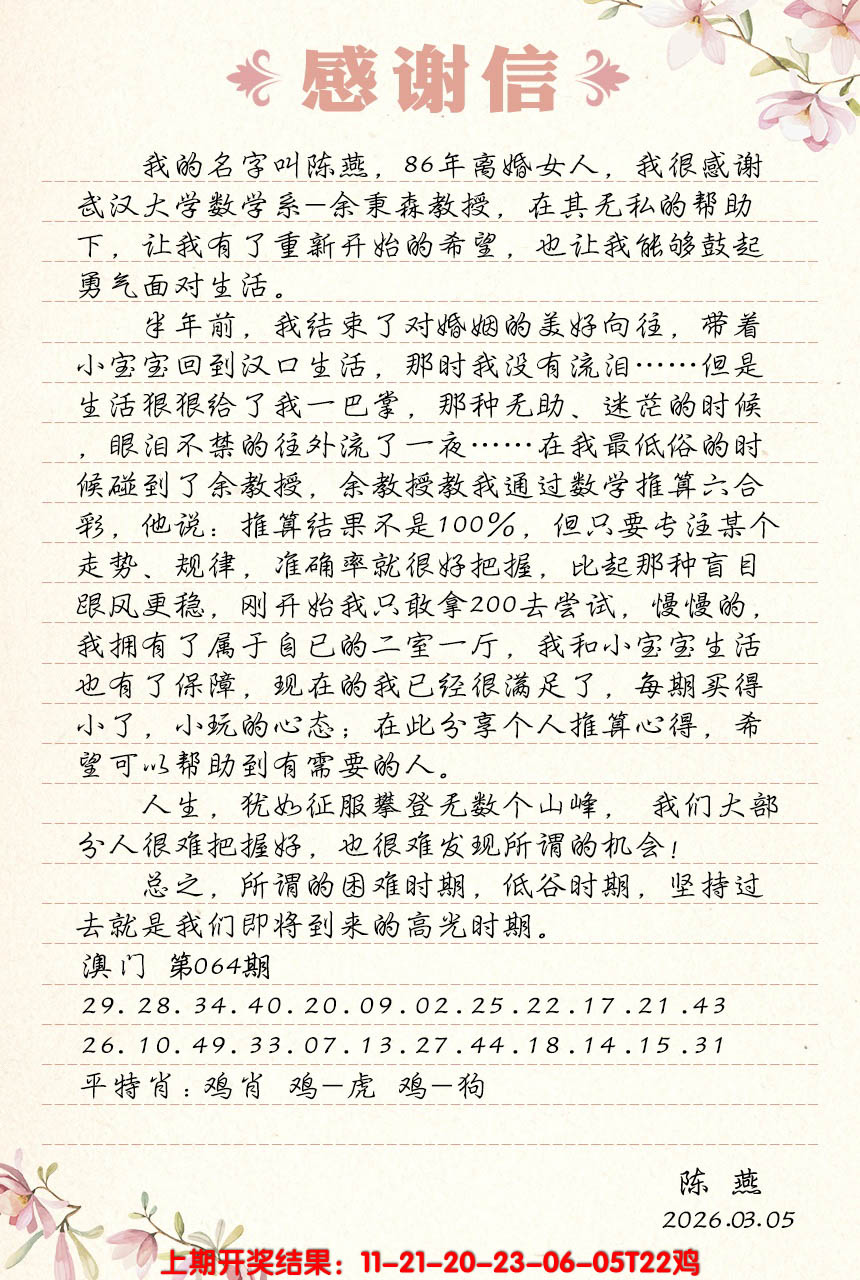 感谢信
我的名字叫陈燕，86年离婚女人，我很感谢
武汉大学数学系-余秉森教授，在其无私的帮助
下，让我有了重新开始的希望，也让我能够鼓起
勇气面对生活。
半年前，我结束了对婚姻的美好向往，带着
小宝宝回到汉口生活，那时我没有流泪……但是
生活狠狠给了我一巴掌，那种无助、迷茫的时候
，眼泪不禁的往外流了一夜……在我最低俗的时
候碰到了余教授，余教授教我通过数学推算六合
彩，他说：推算结果不是100%，但只要专注某个
走势、规律，准确率就很好把握，比起那种盲目
跟风更稳，刚开始我只敢拿200去尝试，慢慢的，
我拥有了属于自已的二室一厅，我和小宝宝生活
也有了保障，现在的我已经很满足了，每期买得
小了，小玩的心态；在此分享个人推算心得，希
望可以帮助到有需要的人。
人生，犹如征服攀登无数个山峰， 我们大部
分人很难把握好，也很难发现所谓的机会！
总之，所谓的困难时期，低谷时期，坚持过
去就是我们即将到来的高光时期。
澳门 第064期
29.28.34.40.20.09.02.25.22.17.21.43
26.10.49.33.07.13.27.44.18.14.15.31
平特肖：鸡肖 鸡-虎 鸡-狗
陈 燕
2026.03.05
上期开奖结果：11-21-20-23-06-05T22鸡